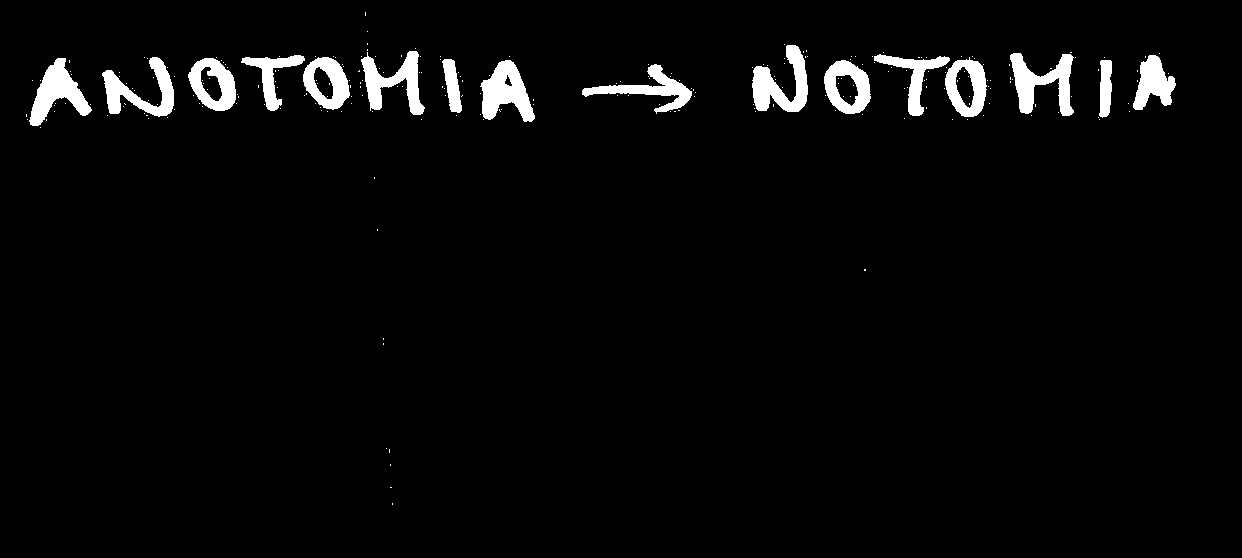 ANOTOMIA → NOTOMIA